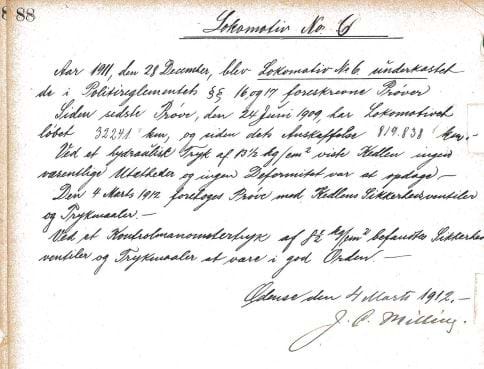 88
Lokomotiv No. 6
Aar 1911, den 28 December, blev Lokomotiv № 6. underkastet
de i Politireglementets §§ 16 og 17 foreskrevne Prøver
Siden sidste Prøve, den 24 Juni 1909, har Lokomotivet
løbet 32241 km, og siden dets Anskaffelse 819.838 km.-
Ved et hydraulisk Tryk af 13½ kg/cm² viste Kedlen ingen
væsentlige Utætheder og ingen Deformitet var at opdage.-
Den 4 Marts 1912 foretoges Prøve med Kedlens Sikkerhedsventiler
og Trykmaaler.-
Ved et Kontrolmanometertryk af kg/cm² befandtes Sikkerheds
ventiler og Trykmaaler at være i god Orden.-
Odense den 4 Marts 1912.-
J. C. Milling.